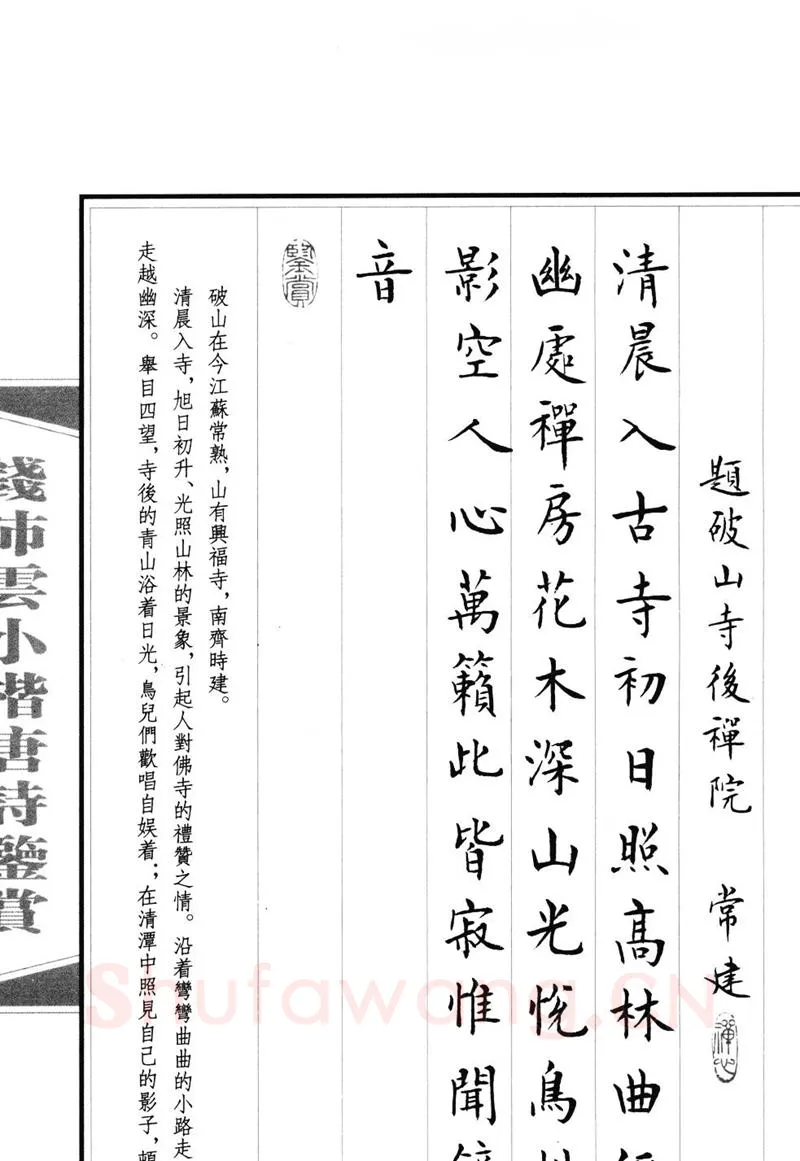 題破山寺後禪院 常建
禪心
清晨入古寺初日照高林曲
幽處禪房花木深山光悅鳥
影空人心萬籟此皆寂惟聞
音
鑒賞
破山在今江蘇常熟，山有興福寺，南齊時建。
清晨入寺，旭日初升、光照山林的景象，引起人對佛寺的禮贊之情。沿着彎彎曲曲的小路走
走越幽深。舉目四望，寺後的青山浴着日光，鳥兒們歡唱自娱着；在清潭中照見自己的影子，頓
錢沛雲小楷唐詩鑒賞
Shufawang.CN